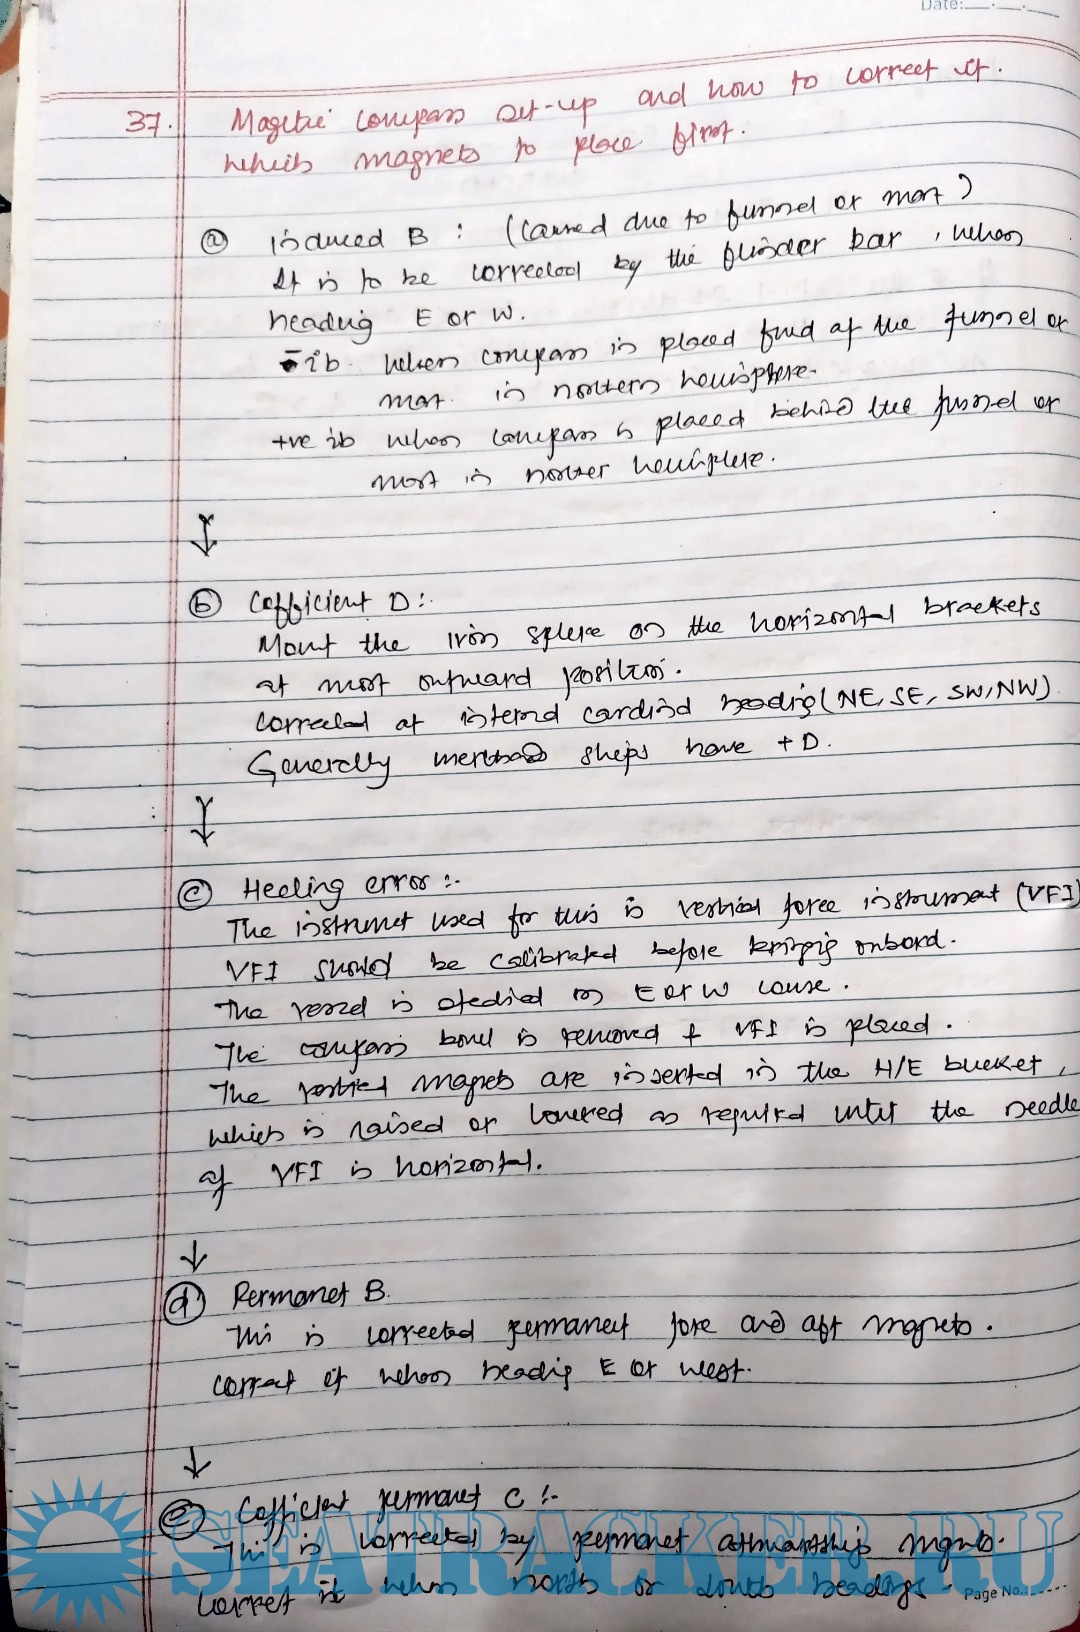 Date:
37. Magetic compass set-up and how to correct it.
which magnets to place first.
(a) induced B : (Caused due to funnel or mast)
It is to be corrected by the flinder bar, when
heading E or W.
-ib. when compass is placed fwd of the funnel or
mast. in northern hemisphere.
+ve ib when compass is placed behind the funnel or
mast in norther hemisphere.
(b) Cofficient D:.
Mount the iron sphere on the horizontal brackets
at most outward position.
corrected at internd cardinal heading (NE, SE, SW, NW)
Generally merchand ships have +D.
(c) Heeling error :-
The instrumet used for this is vertical force instrument (VFI)
VFI should be calibrated before bringig onbord.
The vessel is stedied on E or W couse.
The compass bowl is removed & VFI is placed.
The vertical magnets are inserted in the H/E bucket,
which is raised or lowered as required until the needle
of VFI is horizontal.
(d) Permanet B.
This is corrected permanent fore and aft magnets.
correct it when headig E or west.
(e) Cofficient permanet C :-
This is corrected by permanet athwartship mgnts.
Correct it when north or south headings.
Page No.:
SEATRACKER.RU